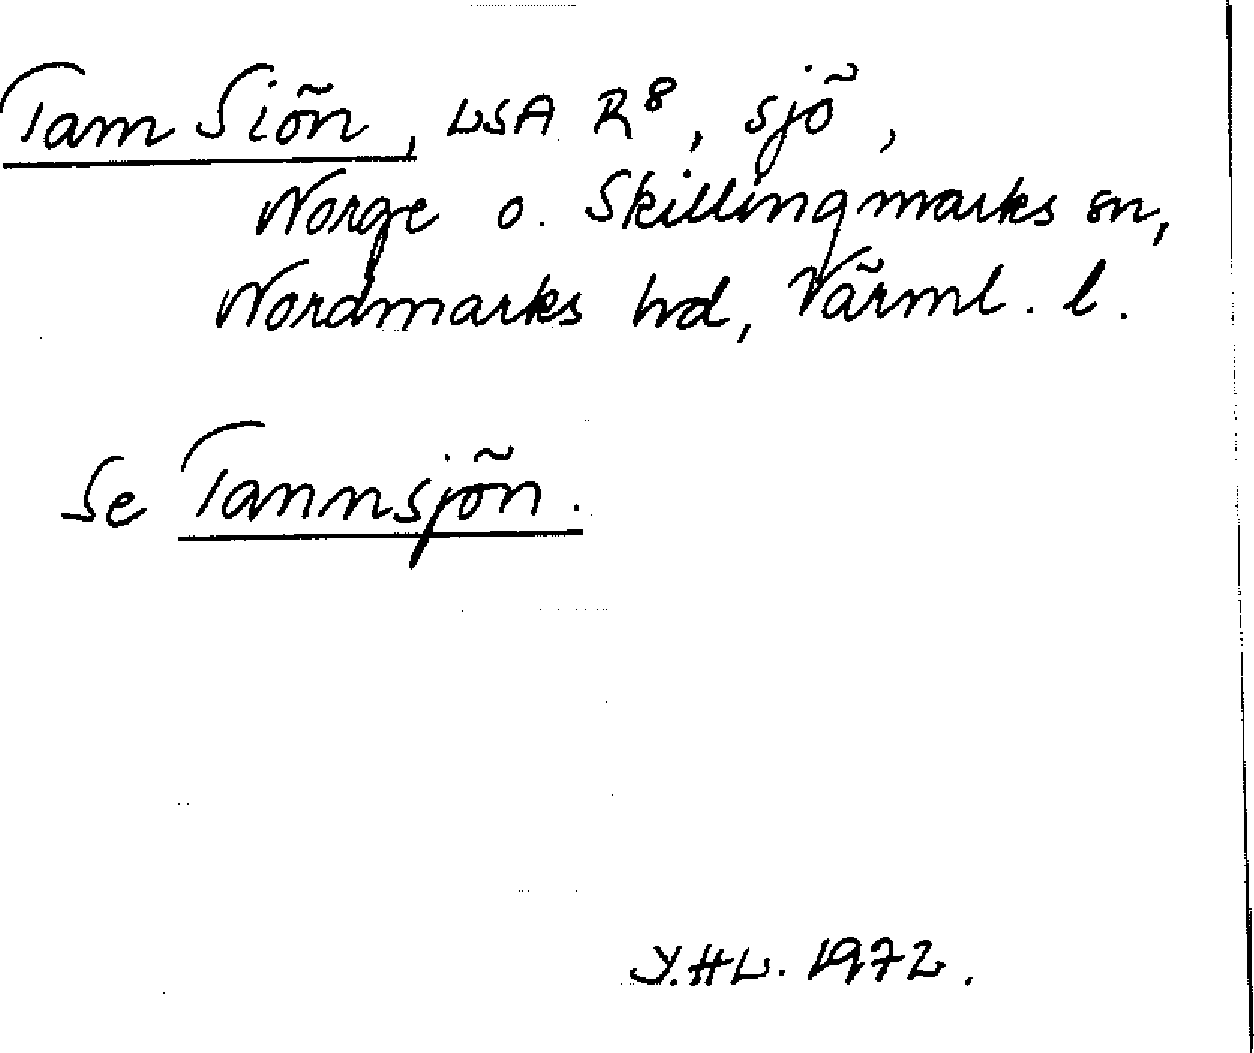 Tam Siön, LSA R⁸, sjö,
Norge o. Skillingmarks sn,
Nordmarks hd, Värml. l.
Se Tannsjön.
Y.HL. 1972.